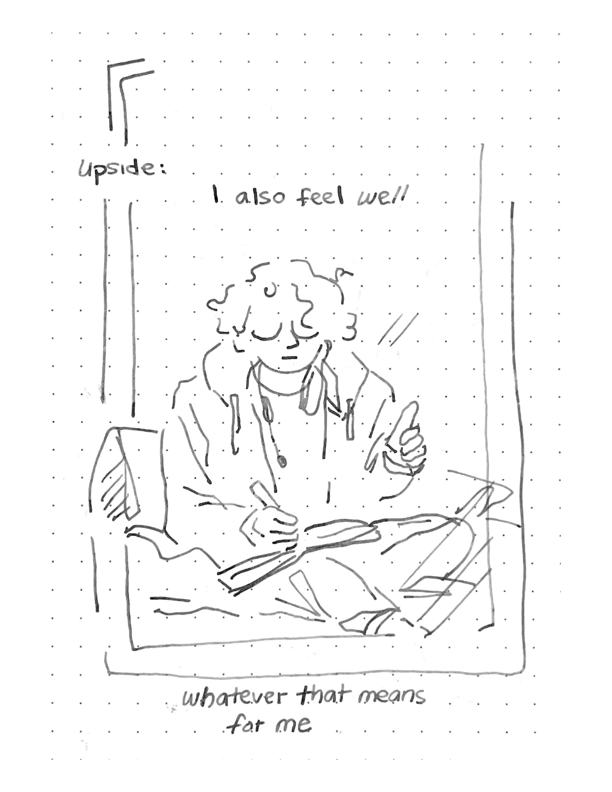 Upside:
I also feel well
whatever that means
for me